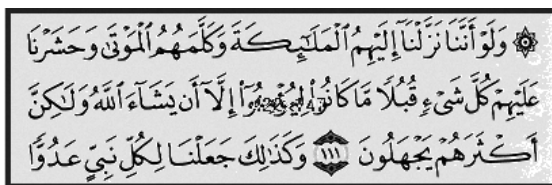 ۞ وَلَوْ أَنَّنَا نَزَّلْنَا إِلَيْهِمُ ٱلْمَلَٰٓئِكَةَ وَكَلَّمَهُمُ ٱلْمَوْتَىٰ وَحَشَرْنَا
عَلَيْهِمْ كُلَّ شَىْءٍ قُبُلًا مَّا كَانُوا۟ إِلَّآ أَن يَشَآءَ ٱللَّهُ وَلَٰكِنَّ
أَكْثَرَهُمْ يَجْهَلُونَ ١١١ وَكَذَٰلِكَ جَعَلْنَا لِكُلِّ نَبِىٍّ عَدُوًّا